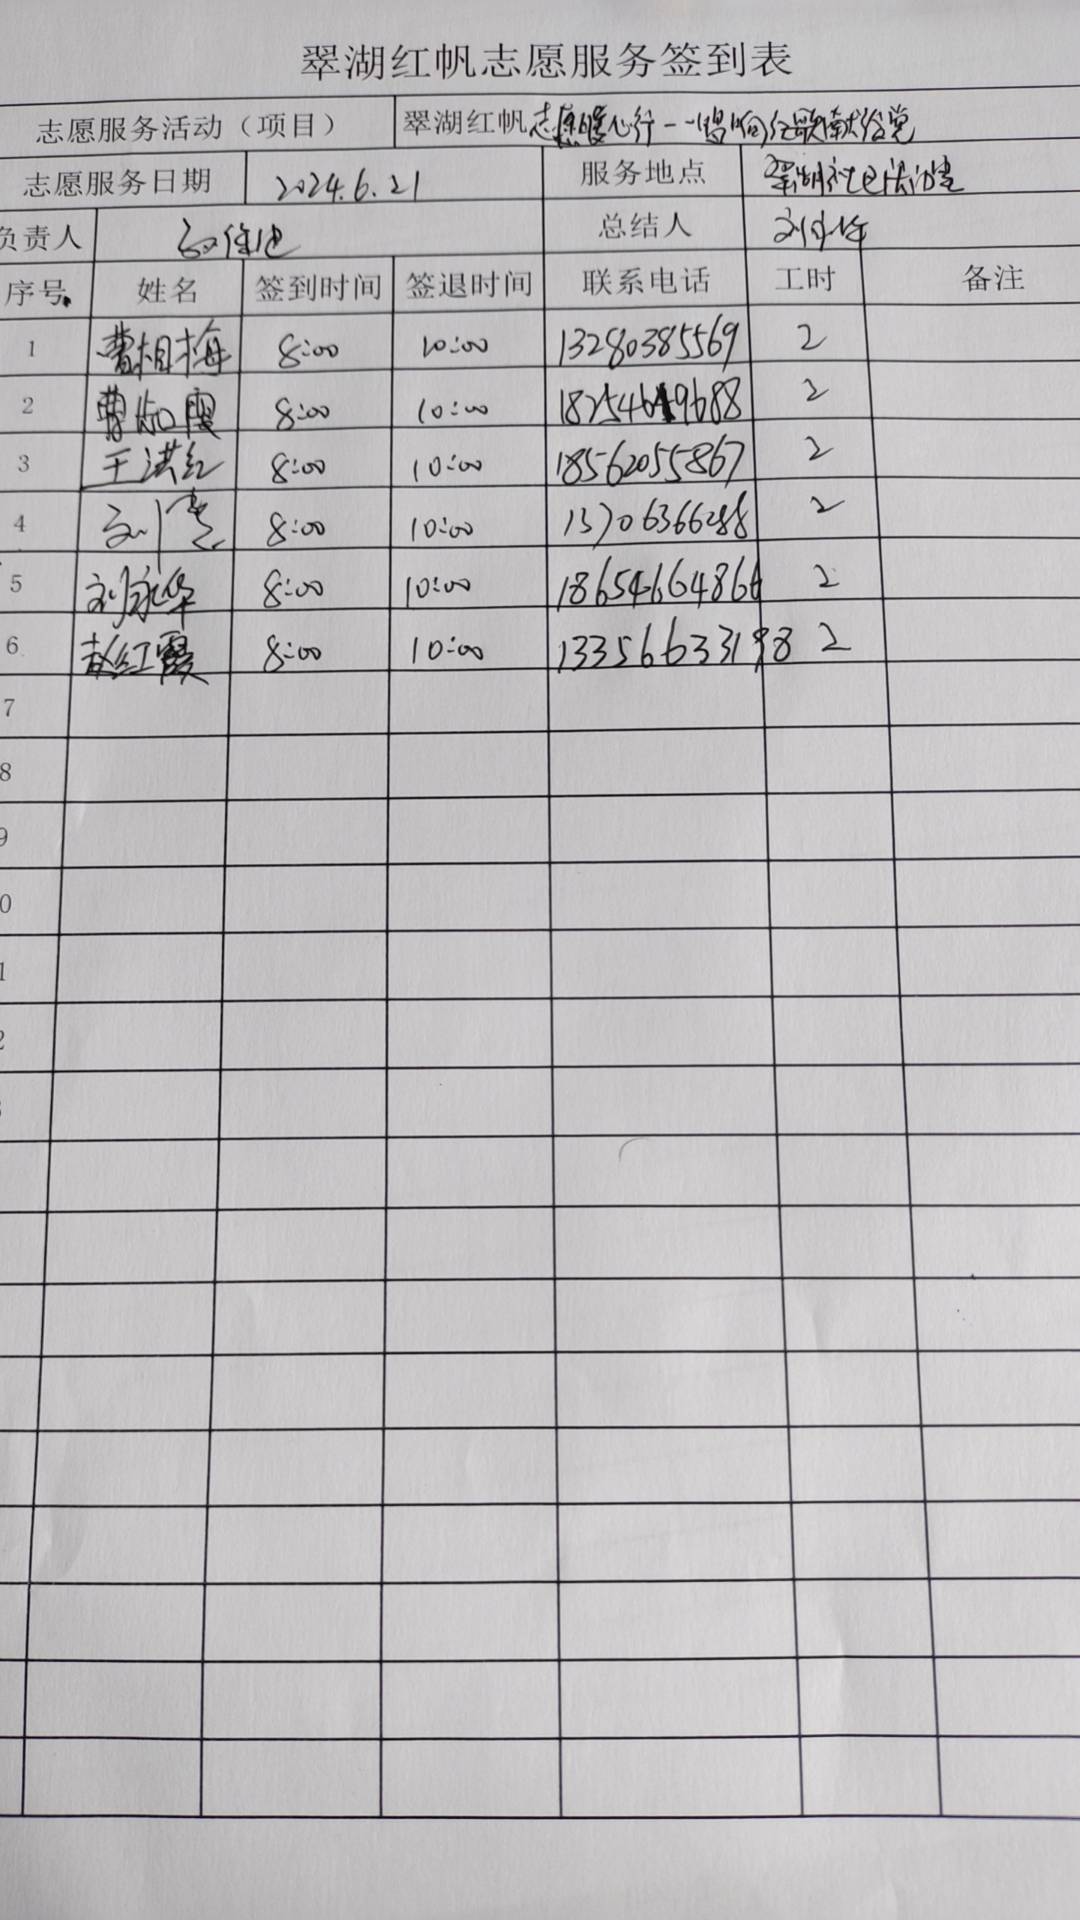 翠湖红帆志愿服务签到表
志愿服务活动（项目） 翠湖红帆志愿暖心行--唱响红歌献给党
志愿服务日期 2024.6.21 服务地点 翠湖社区
负责人 总结人
序号 姓名 签到时间 签退时间 联系电话 工时 备注
1 曹相梅 8:00 10:00 13280385569 2
2 曹 霞 8:00 10:00 18254619688 2
3 王洪红 8:00 10:00 18562055867 2
4 8:00 10:00 13706366288 2
5 刘永华 8:00 10:00 18654664866 2
6 赵红霞 8:00 10:00 13356633198 2
7
8
9
0
1
2